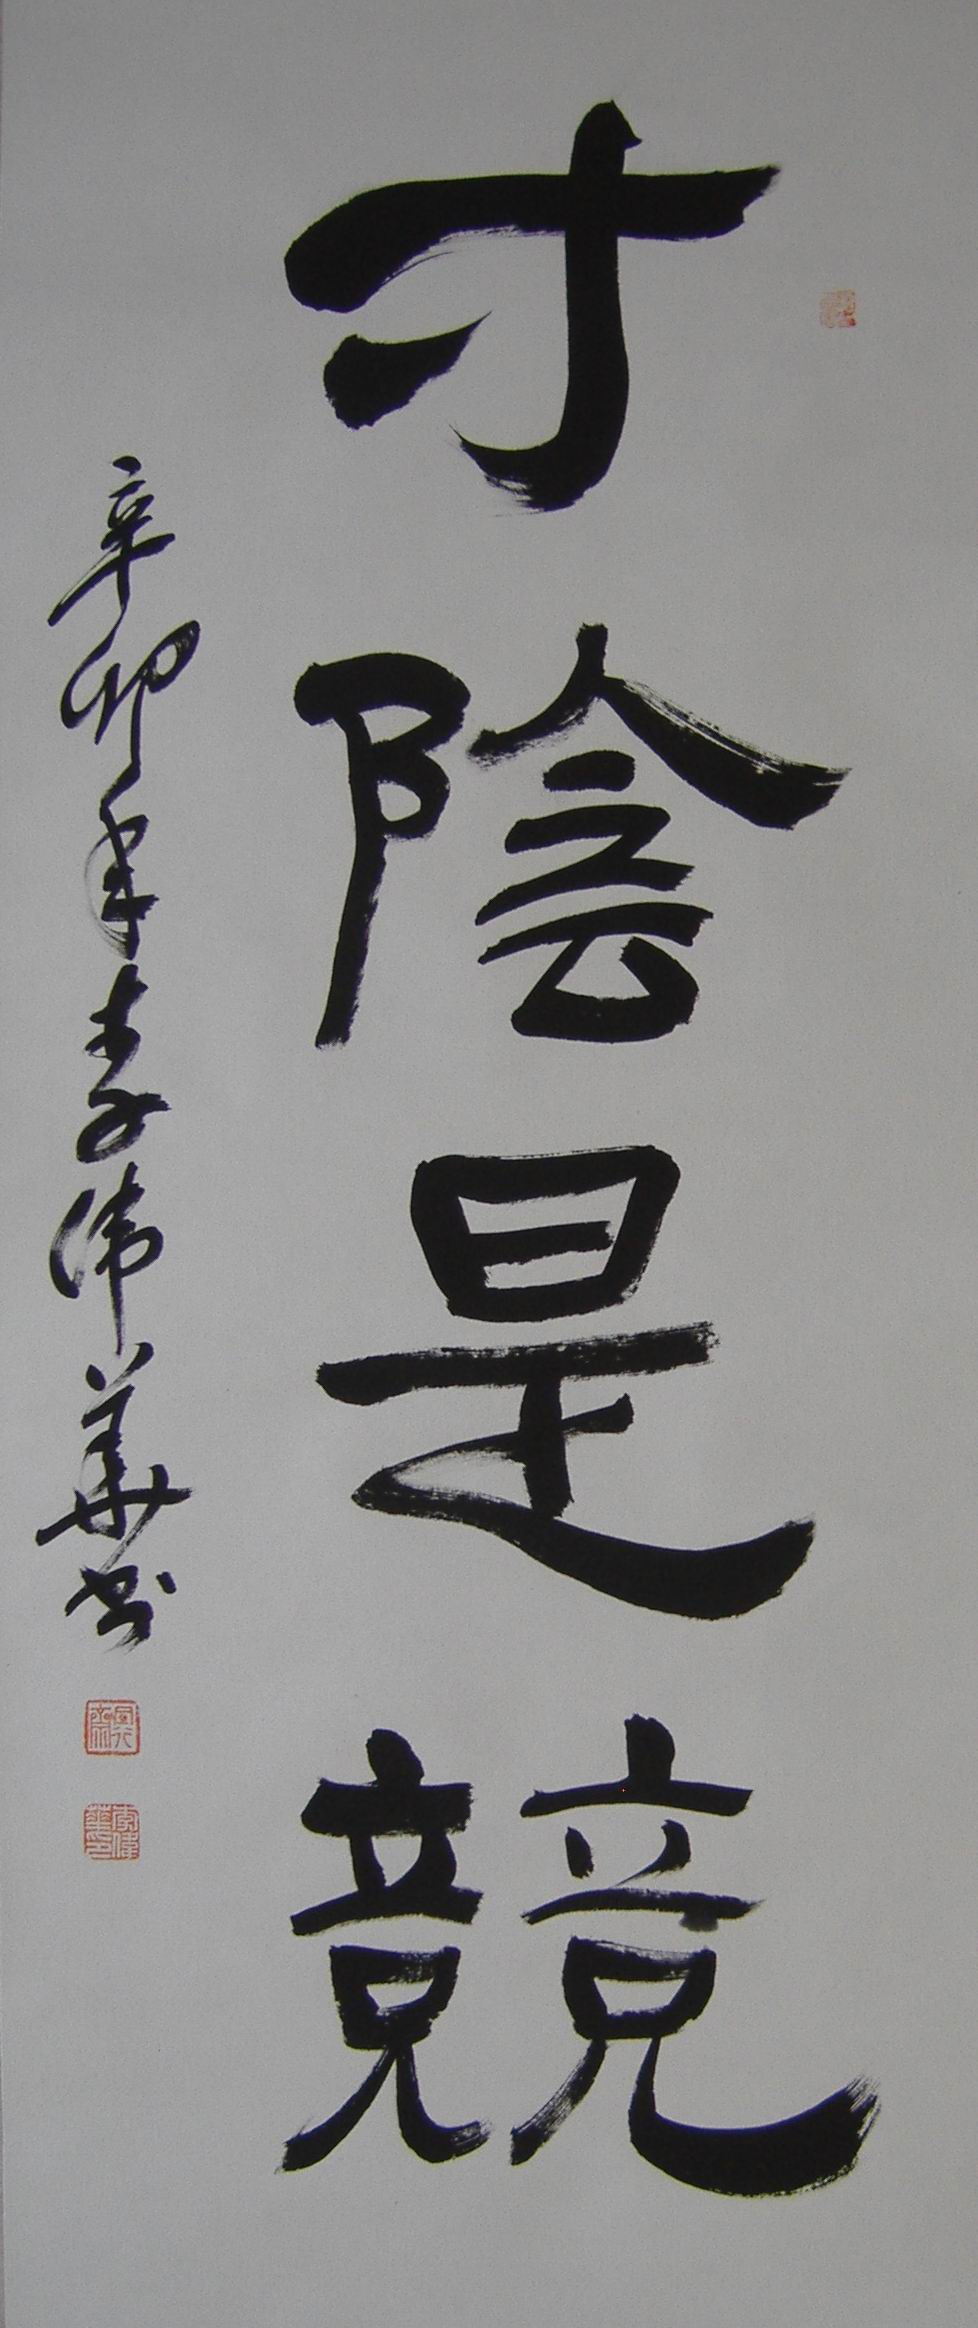 寸陰是競
辛卯年李偉華書